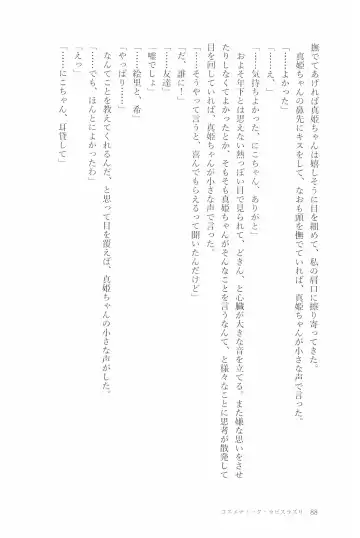 撫でてあげれば真姫ちゃんは嬉しそうに目を細めて、私の肩口に擦り寄ってきた。
真姫ちゃんの鼻先にキスをして、なおも頭を撫でていれば、真姫ちゃんが小さな声で言った。
「……よかった」
「え?」
「……気持ちよかった、にこちゃん、ありがと」
およそ年下とは思えない熱っぽい目で見られて、どきん、と心臓が大きな音を立てる。また嫌な思いをさせ
たりしなくてよかったとか、そもそも真姫ちゃんがそんなことを言うなんて、と様々なことに思考が散発して
目を回していれば、真姫ちゃんが小さな声で言った。
「……そうやって言うと、喜んでもらえるって聞いたんだけど」
「だ、誰に!」
「……友達」
「嘘でしょ」
「……絵里と、希」
「やっぱり……」
なんてことを教えてくれるんだ、と思って目を覆えば、真姫ちゃんの小さな声がした。
「……でも、ほんとによかったわ」
「えっ」
「……にこちゃん、耳貸して」
コスメティーク・ラピスラズリ 88